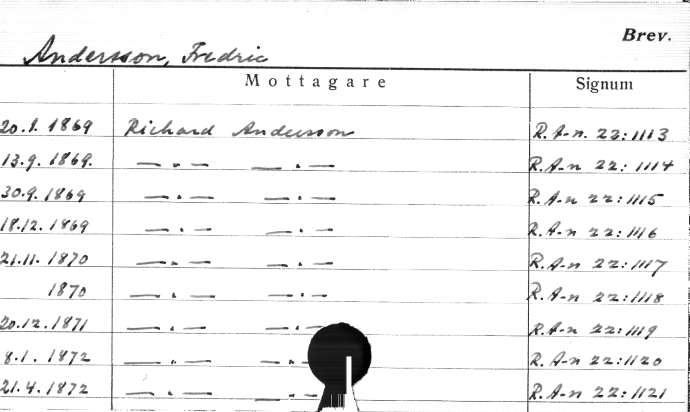 Brev.
Andersson, Fredric
Mottagare Signum
20.8.1869 Richard Andersson R.A-n. 22:1113
13.9.1869. — . — — . — R.A-n 22:1114
30.9.1869 — . — — . — R.A-n 22:1115
18.12.1869 — . — — . — R.A-n 22:1116
21.11.1870 — . — — . — R.A-n 22:1117
1870 — . — — . — R.A-n 22:1118
20.12.1871 — . — — . — R.A-n 22:1119
8.1.1872 — . — — . — R.A-n 22:1120
21.4.1872 — . — — . — R.A-n 22:1121